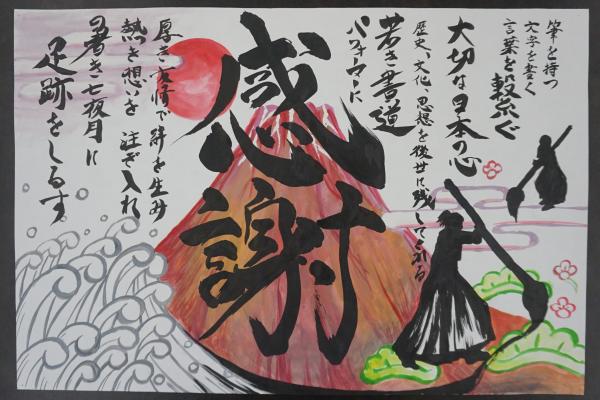 筆を持つ
文字を書く
言葉を繋ぐ
大切な日本の心
歴史、文化、思想を後世に残してくれる
若き書道
パフォーマーに
感謝
厚き友情で絆を生み
熱き想いを注ぎ入れ
暑き七夜月に
足跡をしるす